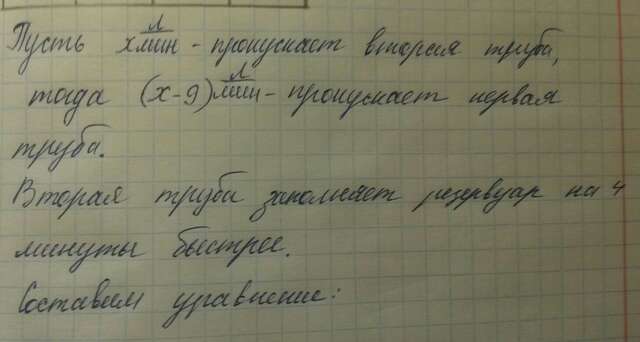 Пусть x л/мин - пропускает вторая труба,
тогда (x-9) л/мин - пропускает первая
труба.
Вторая труба заполняет резервуар на 4
минуты быстрее.
Составим уравнение: